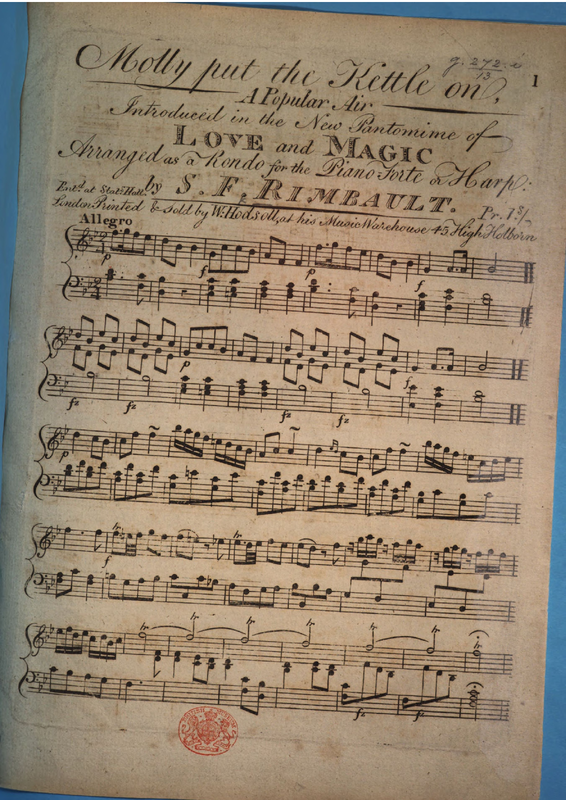 g. 272. i
13
1
Molly put the Kettle on,
A Popular Air
Introduced in the New Pantomime of
LOVE and MAGIC
Arranged as a Rondo for the Piano Forte or Harp:
by S. F. RIMBAULT.
Ent.d at Stat.s Hall. Pr. 1S/-
London Printed & Sold by W. Hodsoll, at his Music Warehouse 45 High Holborn
Allegro
p f p f
p f
fz fz fz fz
tr f tr tr tr
tr tr tr tr tr tr
fz fz